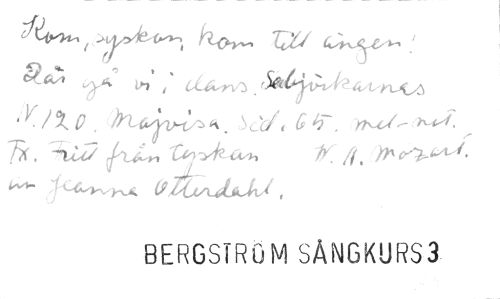 Kom, syskon, kom till ängen!
Där gå vi i dans
N. 120. Majvisa. Sid. 65. mel-not.
Tx. Fritt från tyskan W. A. Mozart.
av Jeanna Otterdahl.
BERGSTRÖM SÅNGKURS 3